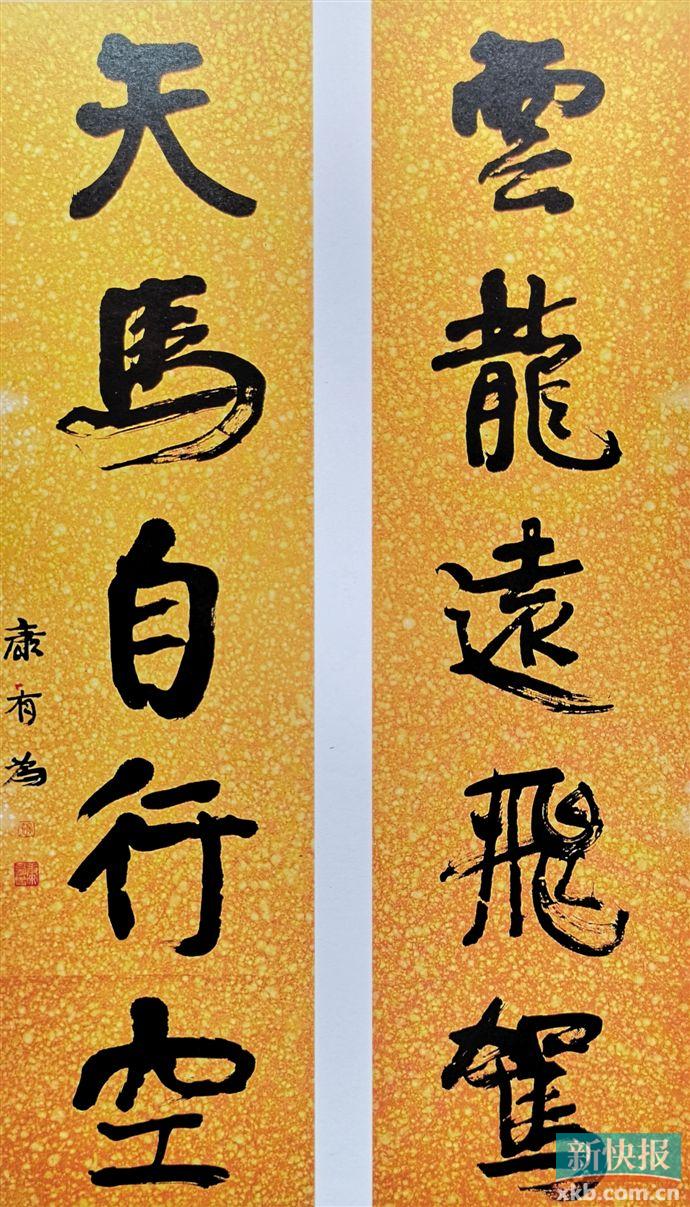 雲龍遠飛駕
天馬自行空
康有為
新快报
xkb.com.cn